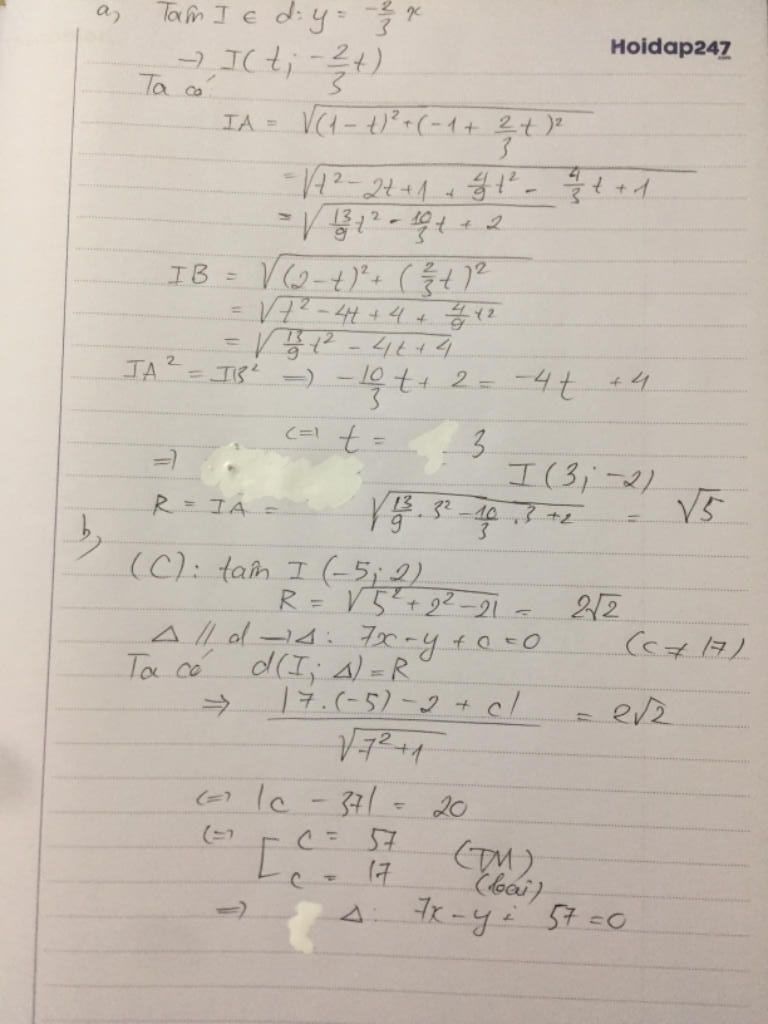 a, Tâm I ∈ d: y = -2/3 x
Hoidap247.com
→ I(t; -2/3 t)
Ta có:
IA = √((1-t)² + (-1 + 2/3 t)²)
= √(t² - 2t + 1 + 4/9 t² - 4/3 t + 1)
= √(13/9 t² - 10/3 t + 2)
IB = √((2-t)² + (2/3 t)²)
= √(t² - 4t + 4 + 4/9 t²)
= √(13/9 t² - 4t + 4)
IA² = IB² => -10/3 t + 2 = -4t + 4
<=> t = 3
=> I(3; -2)
R = IA = √(13/9 . 3² - 10/3 . 3 + 2) = √5
b,
(C): tâm I (-5; 2)
R = √(5² + 2² - 21) = 2√2
Δ // d → Δ: 7x - y + c = 0 (c ≠ 17)
Ta có d(I; Δ) = R
=> |7.(-5) - 2 + c| / √(7² + 1) = 2√2
<=> |c - 37| = 20
<=> [ c = 57 (TM)
c = 17 (loại)
=> Δ: 7x - y + 57 = 0